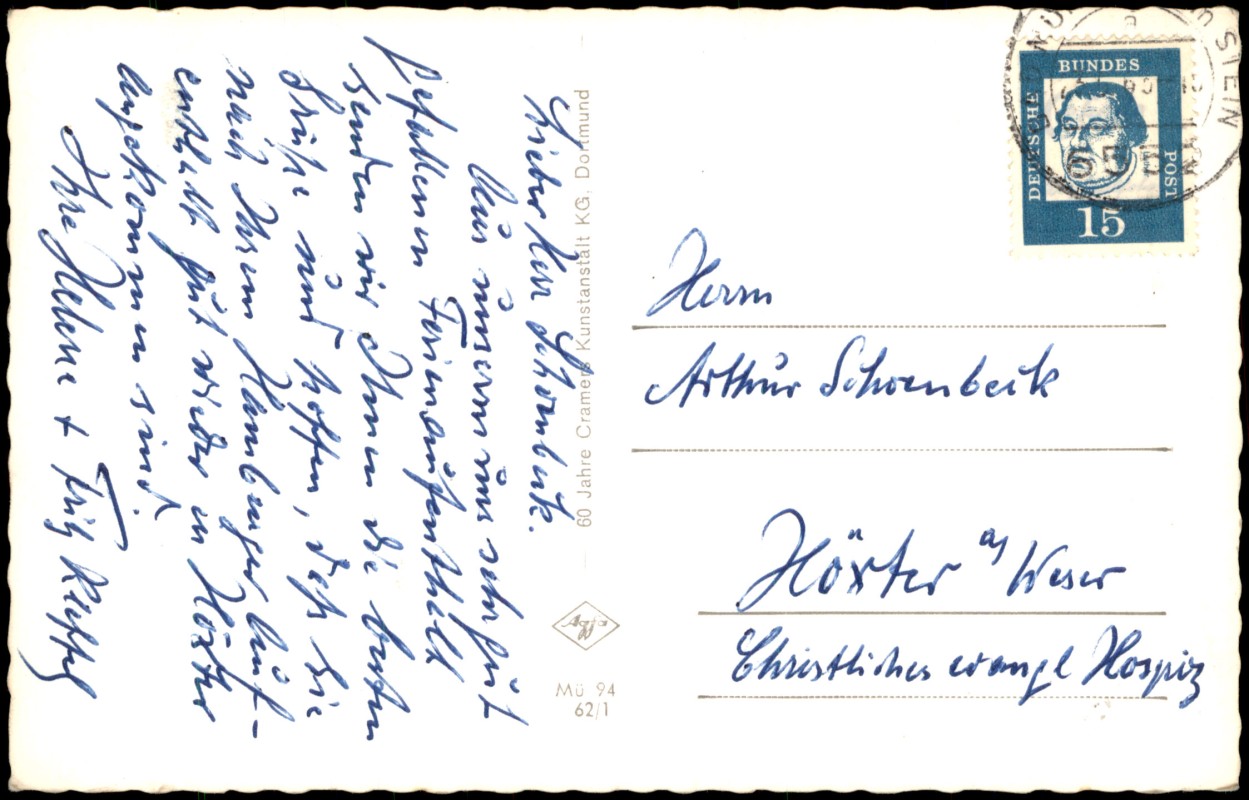 Lieber Herr Schoenbeck.
Aus unserm uns sehr gut
gefallenen Ferienaufenthalt
senden wir Ihnen die besten
Grüße und hoffen, daß Sie
nach Ihrem Hamburger Auf-
enthalt gut wieder in Höxter
angekommen sind.
Ihre Helene + Fritz
60 Jahre Cramers Kunstanstalt KG, Dortmund
Mü 94
62/1
DEUTSCHE BUNDES POST
15
STEIN
Herrn
Arthur Schoenbeck
Höxter a/ Weser
Christliches evangl Hospiz